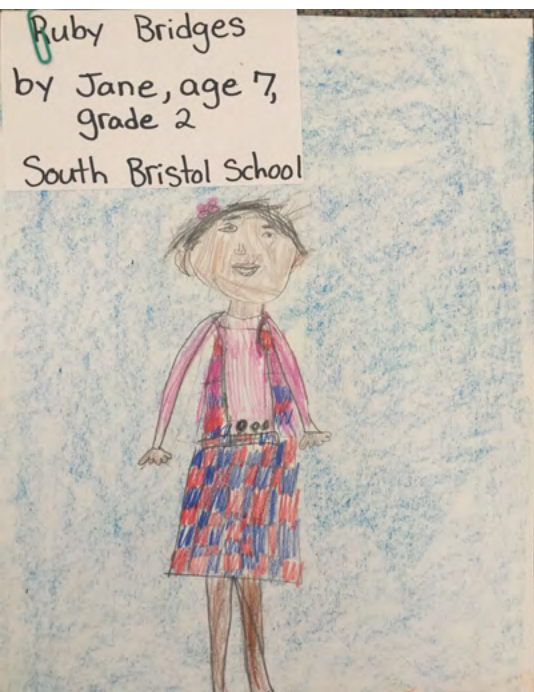 Ruby Bridges
by Jane, age 7,
grade 2
South Bristol School